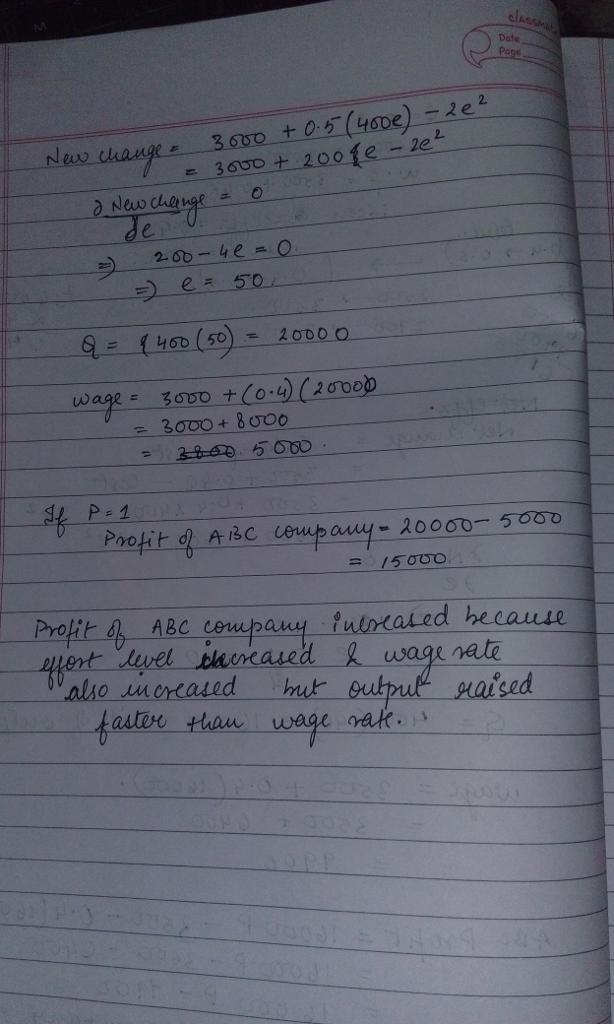 classmate
Date
Page
New change = 3000 + 0.5 (400e) - 2e²
= 3000 + 200 e - 2e²
∂ New change / ∂e = 0
⇒ 200 - 4e = 0
⇒ e = 50.
Q = 400 (50) = 20000
wage = 3000 + (0.4) (20000)
= 3000 + 8000
= 3800 5000.
If P = 1
Profit of ABC company = 20000 - 5000
= 15000
Profit of ABC company increased because
effort level increased & wage rate
also increased but output raised
faster than wage rate.